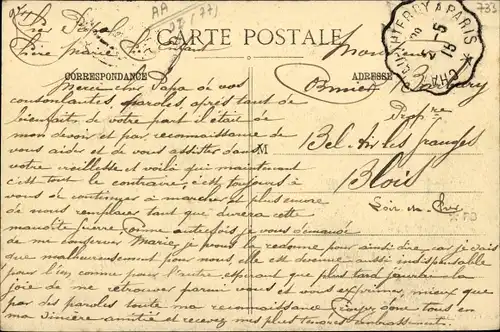 CARTE POSTALE
CORRESPONDANCE
ADRESSE
CHATEAU-THIERRY A PARIS
25-5
15
AA
(77)
733
Cher Papa
Monsieur
Merci cher Papa de vos
consolantes paroles, après tant de
bienfaits, de votre part il était de
mon devoir et par reconnaissance de
vous aider et de vous assister dans
votre vieillesse et voilà que maintenant
c'est tout le contraire, c'est toujours à
vous de continuer à marcher et plus encore
de nous remplacer tant que durera cette
maudite guerre. Comme autrefois je vous demande
de me conserver Marie, je vous la redonne pour ainsi dire car je sais
que malheureusement pour nous, elle est devenue aussi indispensable
pour l'un comme pour l'autre, espérant que plus tard j'aurai la
joie de me retrouver parmi vous et vous exprimer mieux que
par des paroles toute ma reconnaissance. Croyez donc tous en
ma sincère amitié et recevez mes plus tendres embrassements.
M
Propre
Bel-Air les Granges
Blois
Loir-et-Cher